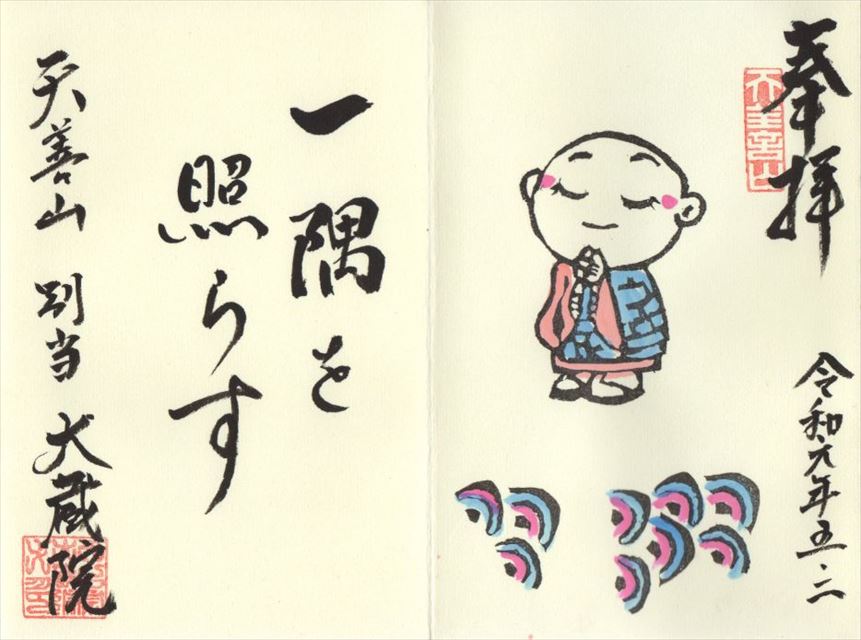 奉拝
天善山
令和元年五・二
一隅を
照らす
天善山 別当 大蔵院